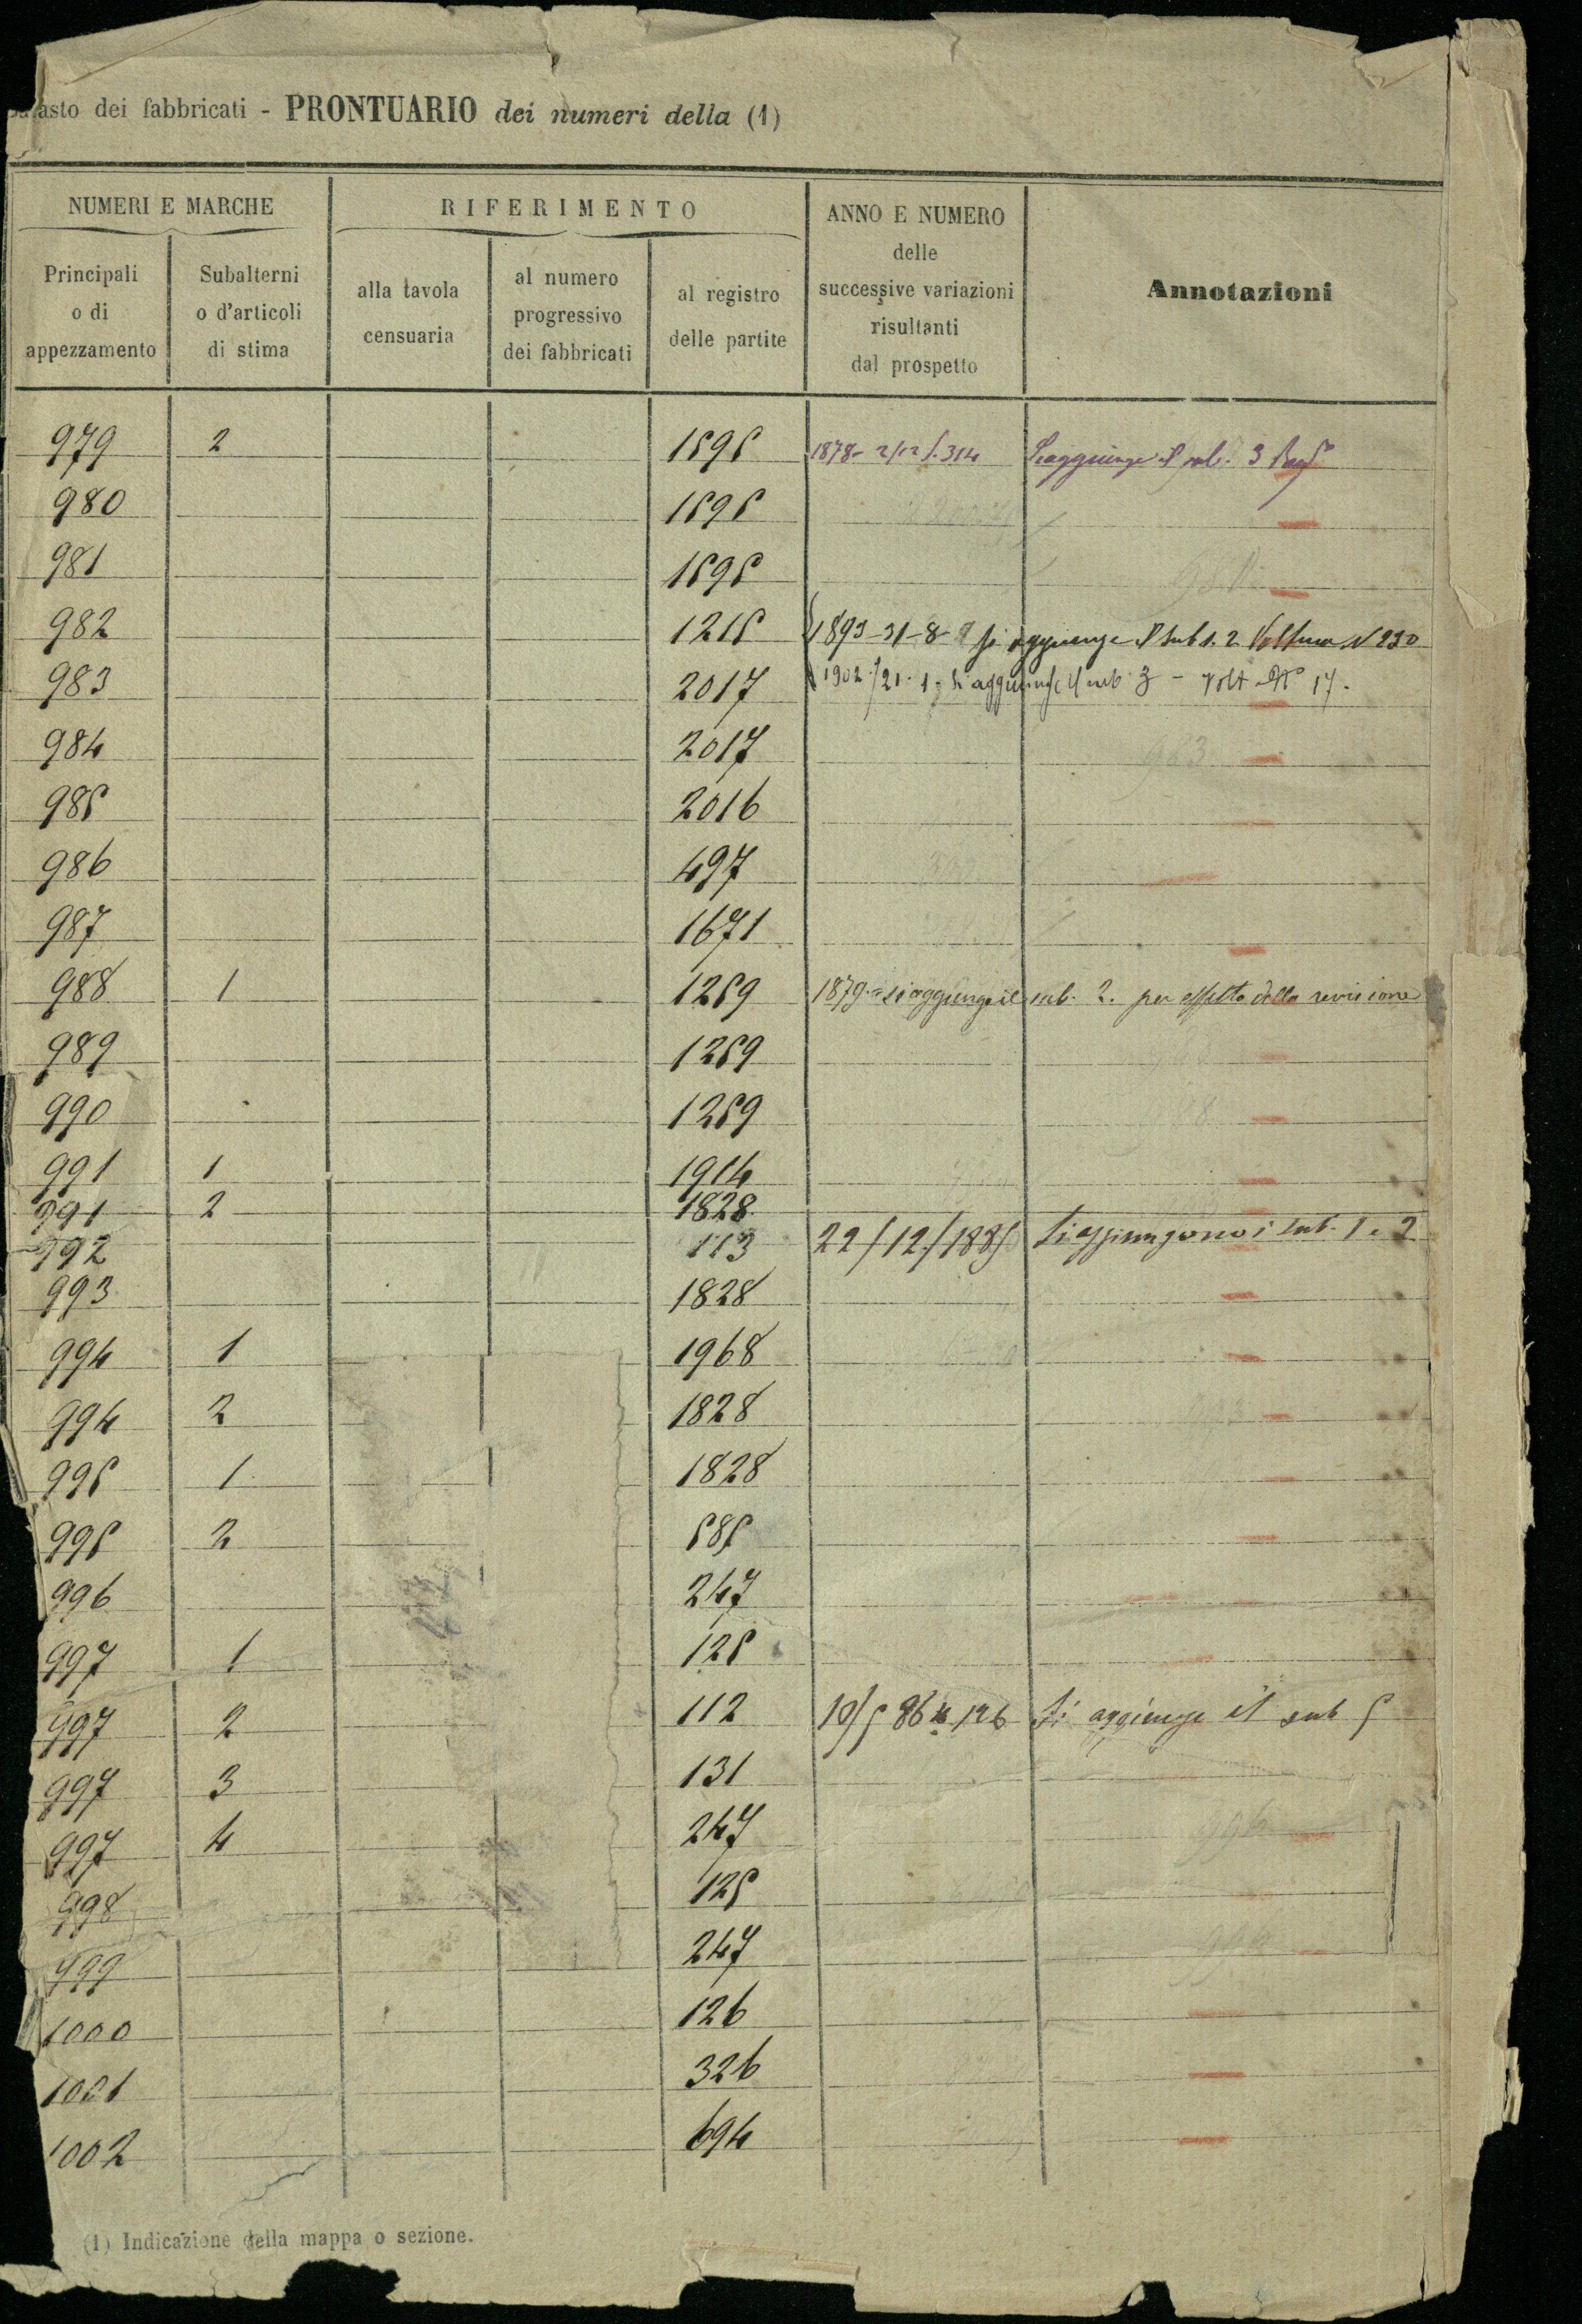 asto dei fabbricati - PRONTUARIO dei numeri della (1)
NUMERI E MARCHE
RIFERIMENTO
ANNO E NUMERO
delle
successive variazioni
risultanti
dal prospetto
Annotazioni
Principali
o di
appezzamento
Subalterni
o d'articoli
di stima
alla tavola
censuaria
al numero
progressivo
dei fabbricati
al registro
delle partite
979 2 1595 1878 - 2/12 314 Si aggiunge il sub. 3
980 1595
981 1595
982 1215 1893-31-8- Si aggiunge il sub 1. 2 Voltura N 230
983 2017 1902 21.1- Si aggiunge il sub 3 - Volt N° 17.
984 2017
985 2016
986 497
987 1671
988 1 1259 1879 = si aggiunge il sub. 2. per effetto della revisione
989 1259
990 1259
991 1 1914
991 2 1828
992 113 22/12/1885 Si aggiungono i sub. 1. 2
993 1828
994 1 1968
994 2 1828
995 1 1828
995 2 585
996 247
997 1 125
997 2 112 10/5 86 N 126 Si aggiunge il sub 5
997 3 131
997 4 247
998 125
999 247
1000 126
1001 326
1002 694
(1) Indicazione della mappa o sezione.